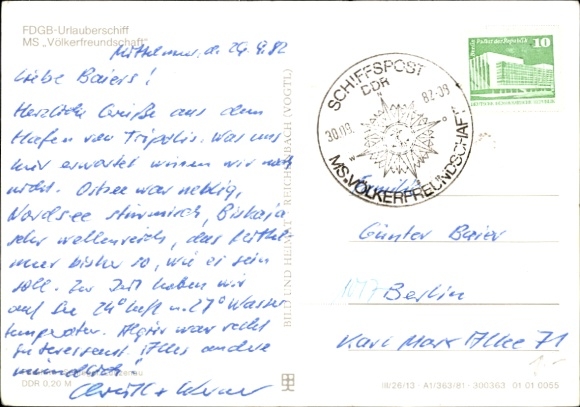 FDGB-Urlauberschiff
MS „Völkerfreundschaft"
Mittelmeer, d. 29.9.82
Liebe Baiers!
Herzliche Grüße aus dem
Hafen von Tripolis. Was uns
hier erwartet wissen wir noch
nicht. Ostsee war neblig,
Nordsee stürmisch, Biskaja
sehr wellenreich, das Mittel-
meer bisher so, wie es sein
soll. Zur Zeit haben wir
auf See 24° Luft u. 27° Wasser
temperatur. Algier war recht
interessant. Alles andere
mündlich!
DDR 0,20 M
BILD UND HEIMAT REICHENBACH (VOGTL)
SCHIFFSPOST
DDR
30.09. 82-09
MS„VÖLKERFREUNDSCHAFT"
Berlin Palast der Republik 10
Familie
Günter Baier
1017 Berlin
Karl Marx Allee 71
III/26/13 · A1/363/81 · 300363 01 01 0055